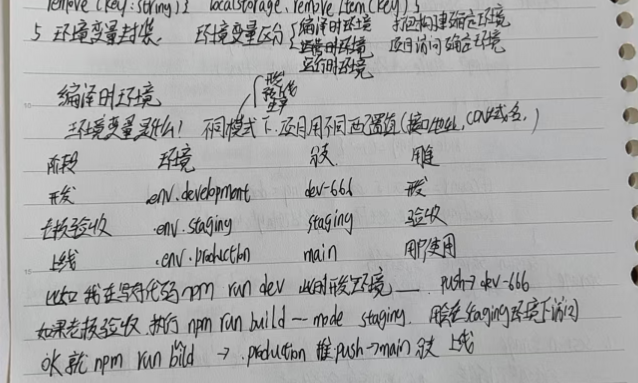 remove(key:string){ localstorage.removeItem(key)}
5 环境变量封装. 环境变量区分 编译时环境 打包构建确定环境
运行时环境 项目访问确定环境
编译时环境 开发
生产
环境变量是什么! 不同模式下.项目用不同的配置值(接口地址, CDN域名,)
阶段 环境 分支 用途
开发 .env.development dev-666 开发
老板验收 .env.staging staging 验收
上线 .env.production main 用户使用
比如 我在写代码 npm run dev 此时开发环境 push→dev-666
如果老板验收 执行 npm run build -- mode staging. 在staging环境下访问
OK 就 npm run bild → .production 推push→main 分支 上线